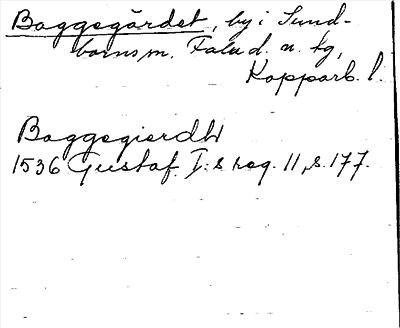 Baggegärdet, by i Sund-
borns sn. Falu d. u. tg,
Kopparb. l.
Baggegierdhr
1536 Gustaf I:s reg. 11, s. 177.